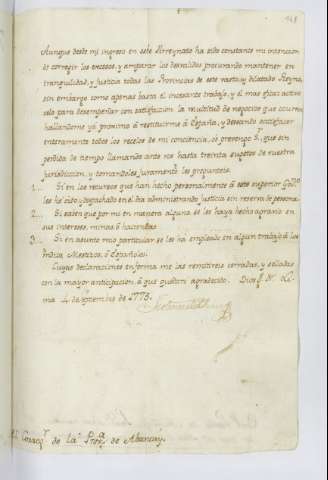 Aunque desde mi ingreso en este Virreynato ha sido constante mi intencion
de corregir los excesos, y amparar los desvalidos procurando mantener en
tranquilidad, y justicia todas las Provincias de este vasto, y dilatado Reyno,
sin embargo como apenas basta el incesante trabajo, y el mas eficaz activo
zelo para desempeñar con satisfaccion la multitud de negocios que ocurren
hallandome ya proximo á restituirme á España, y deseando satisfacer
enteramente todos los recelos de mi conciencia, os prevengo que sin
perdida de tiempo llamando ante vos hasta treinta sugetos de vuestra
jurisdiccion, y tomandoles juramento les pregunteis
1... Si en los recursos que han hecho personalmente á este superior Govno
les he oido y despachado en el dia administrando justicia sin reserva de persona
2... Si saben que por mi en manera alguna se les haya hecho agravio en
sus intereses, minas ó haciendas
3... Si en asunto mio particular se les ha empleado en algun trabajo á los
Yndios Mestizos, ó Españoles.
Cuyas declaraciones en forma me las remitireis cerradas, y selladas
con la mayor anticipacion á que quedaré agradecido. Dios gue. á V. Li
ma 4 de Septiembre de 1775.
Corregr de la Prova de Abancay.